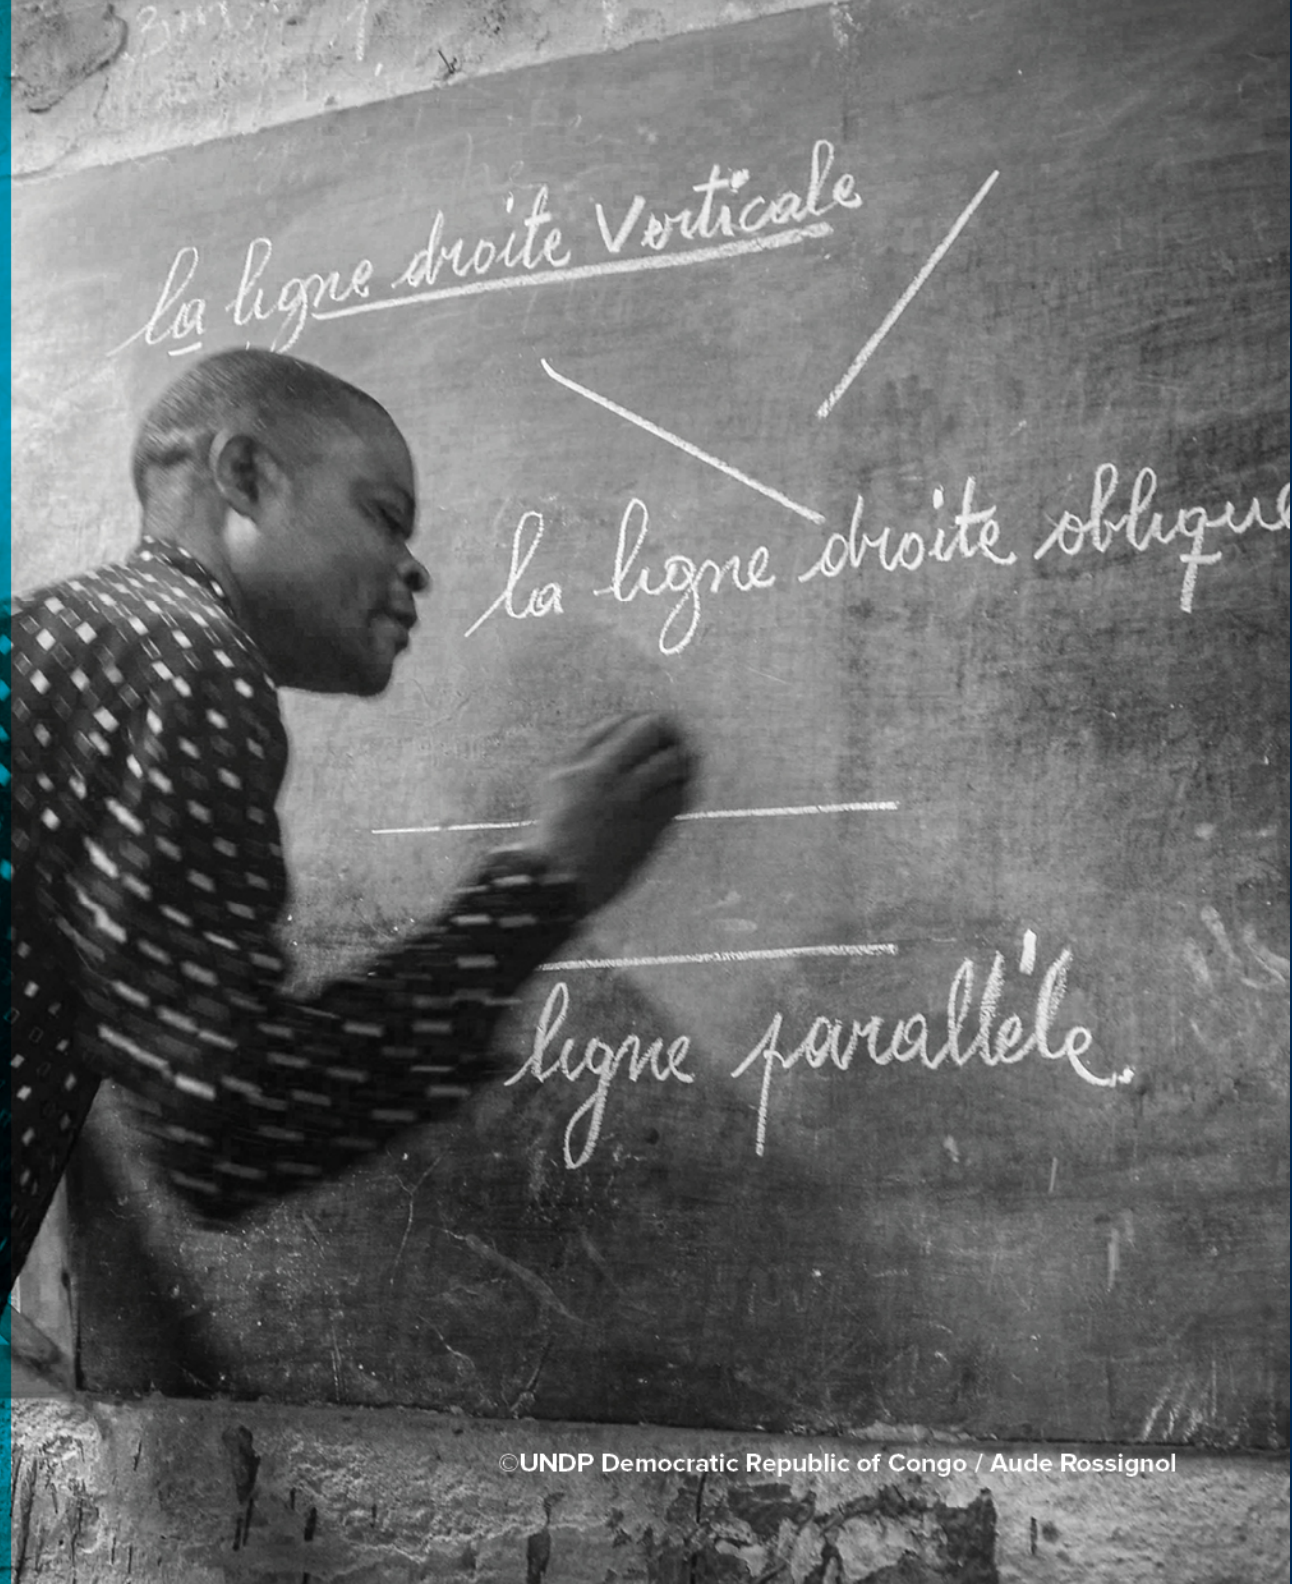 la ligne droite Verticale
la ligne droite oblique
ligne parallèle.
©UNDP Democratic Republic of Congo / Aude Rossignol